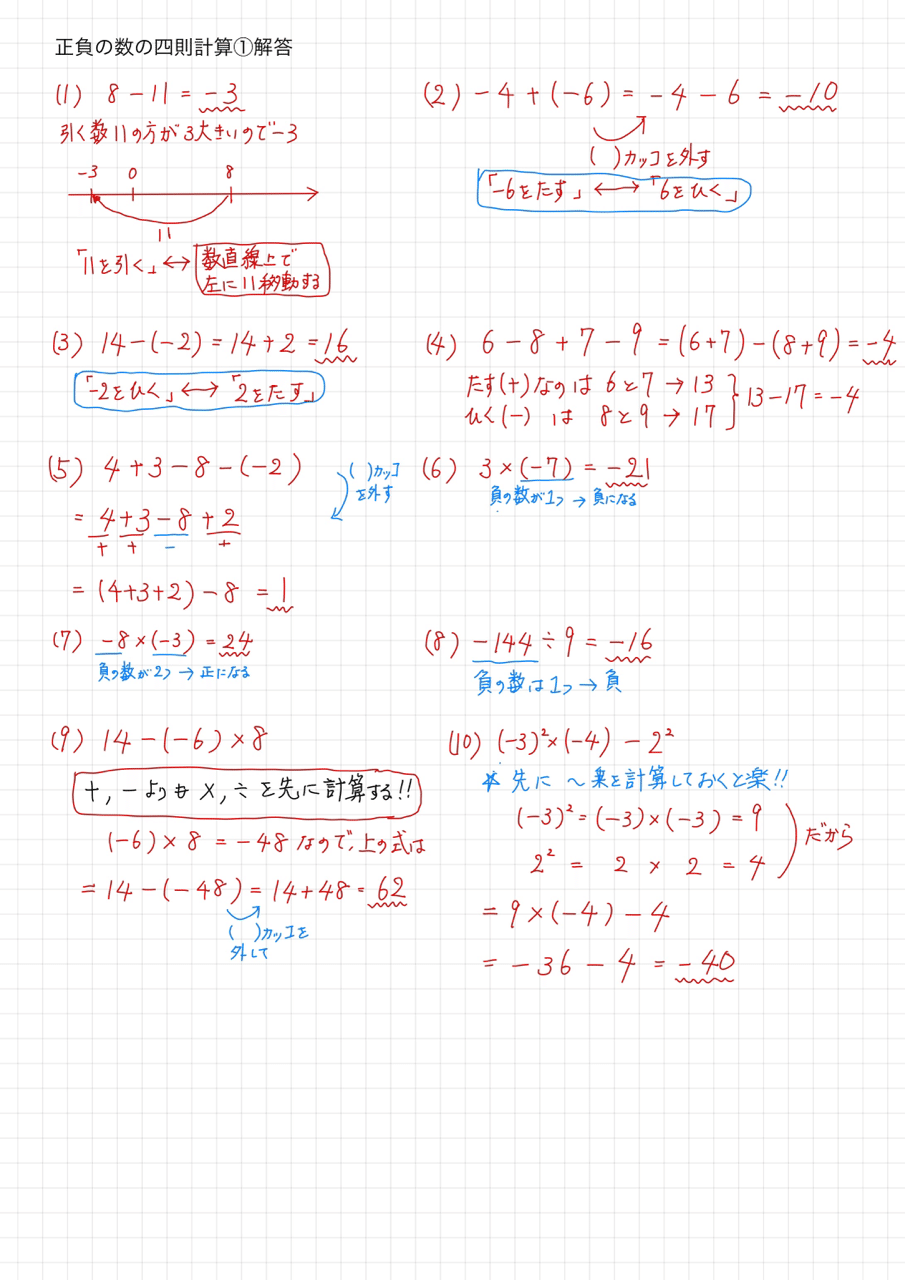 正負の数の四則計算①解答
(1) 8-11=-3
引く数11の方が3大きいので-3
-3 0 8
11
「11を引く」↔数直線上で
左に11移動する
(2) -4+(-6)=-4-6=-10
( )カッコを外す
「-6をたす」↔「6をひく」
(3) 14-(-2)=14+2=16
「-2をひく」↔「2をたす」
(4) 6-8+7-9=(6+7)-(8+9)=-4
たす(+)なのは 6と7→13
ひく(-) は 8と9→17
13-17=-4
(5) 4+3-8-(-2)
( )カッコ
を外す
=4+3-8+2
+ + - +
=(4+3+2)-8=1
(6) 3×(-7)=-21
負の数が1つ→負になる
(7) -8×(-3)=24
負の数が2つ→正になる
(8) -144÷9=-16
負の数は1つ→負
(9) 14-(-6)×8
+,-よりも×,÷を先に計算する!!
(-6)×8=-48なので,上の式は
=14-(-48)=14+48=62
( )カッコを
外して
(10) (-3)²×(-4)-2²
* 先に〜乗を計算しておくと楽!!
(-3)²=(-3)×(-3)=9
2²=2×2=4
だから
=9×(-4)-4
=-36-4=-40